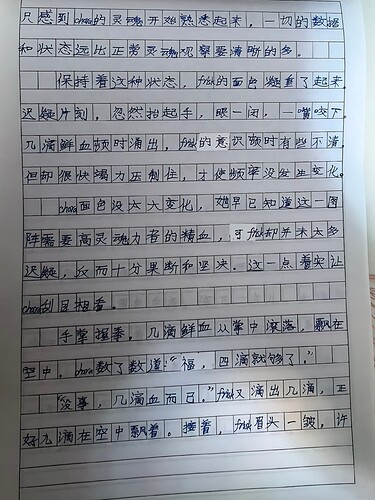 只感到chara的灵魂开始熟悉起来，一切的数据
和状态远比正常灵魂观察要清晰的多。
保持着这种状态，frisk的面色凝重了起来，
迟疑片刻，忽然抬起手，眼一闭，一嘴咬下，
几滴鲜血顿时涌出，frisk的意识顿时有些不清，
但却很快竭力压制住，才使频率没发生变化。
chara面色没太大变化，她早已知道这一图
阵需要高灵魂力者的精血，可frisk却并未太多
迟疑，反而十分果断和坚决。这一点着实让
chara刮目相看。
手掌握拳。几滴鲜血从掌中滚落，飘在
空中。chara数了数道：“福，四滴就够了。”
“没事，几滴血而已。”frisk又滴出几滴，正
好九滴在空中飘着。接着，frisk眉头一皱，许